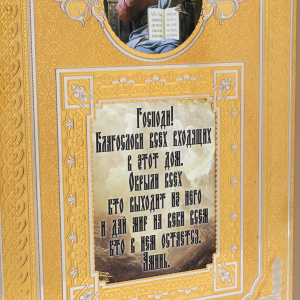 Господи!
Благослови всех входящих
в этот дом.
Окрыли всех
кто выходит из него
и дай мир на веки всем
кто в нем остается.
Аминь.